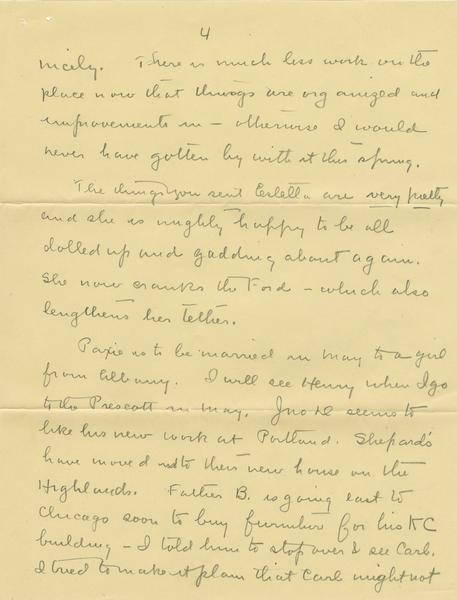 4
nicely. There is much less work on the
place now that things are organized and
improvements in - otherwise I would
never have gotten by with it this spring.
The things you sent Estella are very pretty
and she is mighty happy to be all
dolled up and gadding about again.
She now cranks the Ford - which also
lengthens her tether.
Paxie is to be married in May to a girl
from Albany. I will see Henry when I go
to the Prescott in May. Jno D seems to
like his new work at Portland. Shepard's
have moved into their new house on the
Highlands. Father B. is going east to
Chicago soon to buy furniture for his KC
building - I told him to stop over & see Carl.
I tried to make it plain that Carl might not